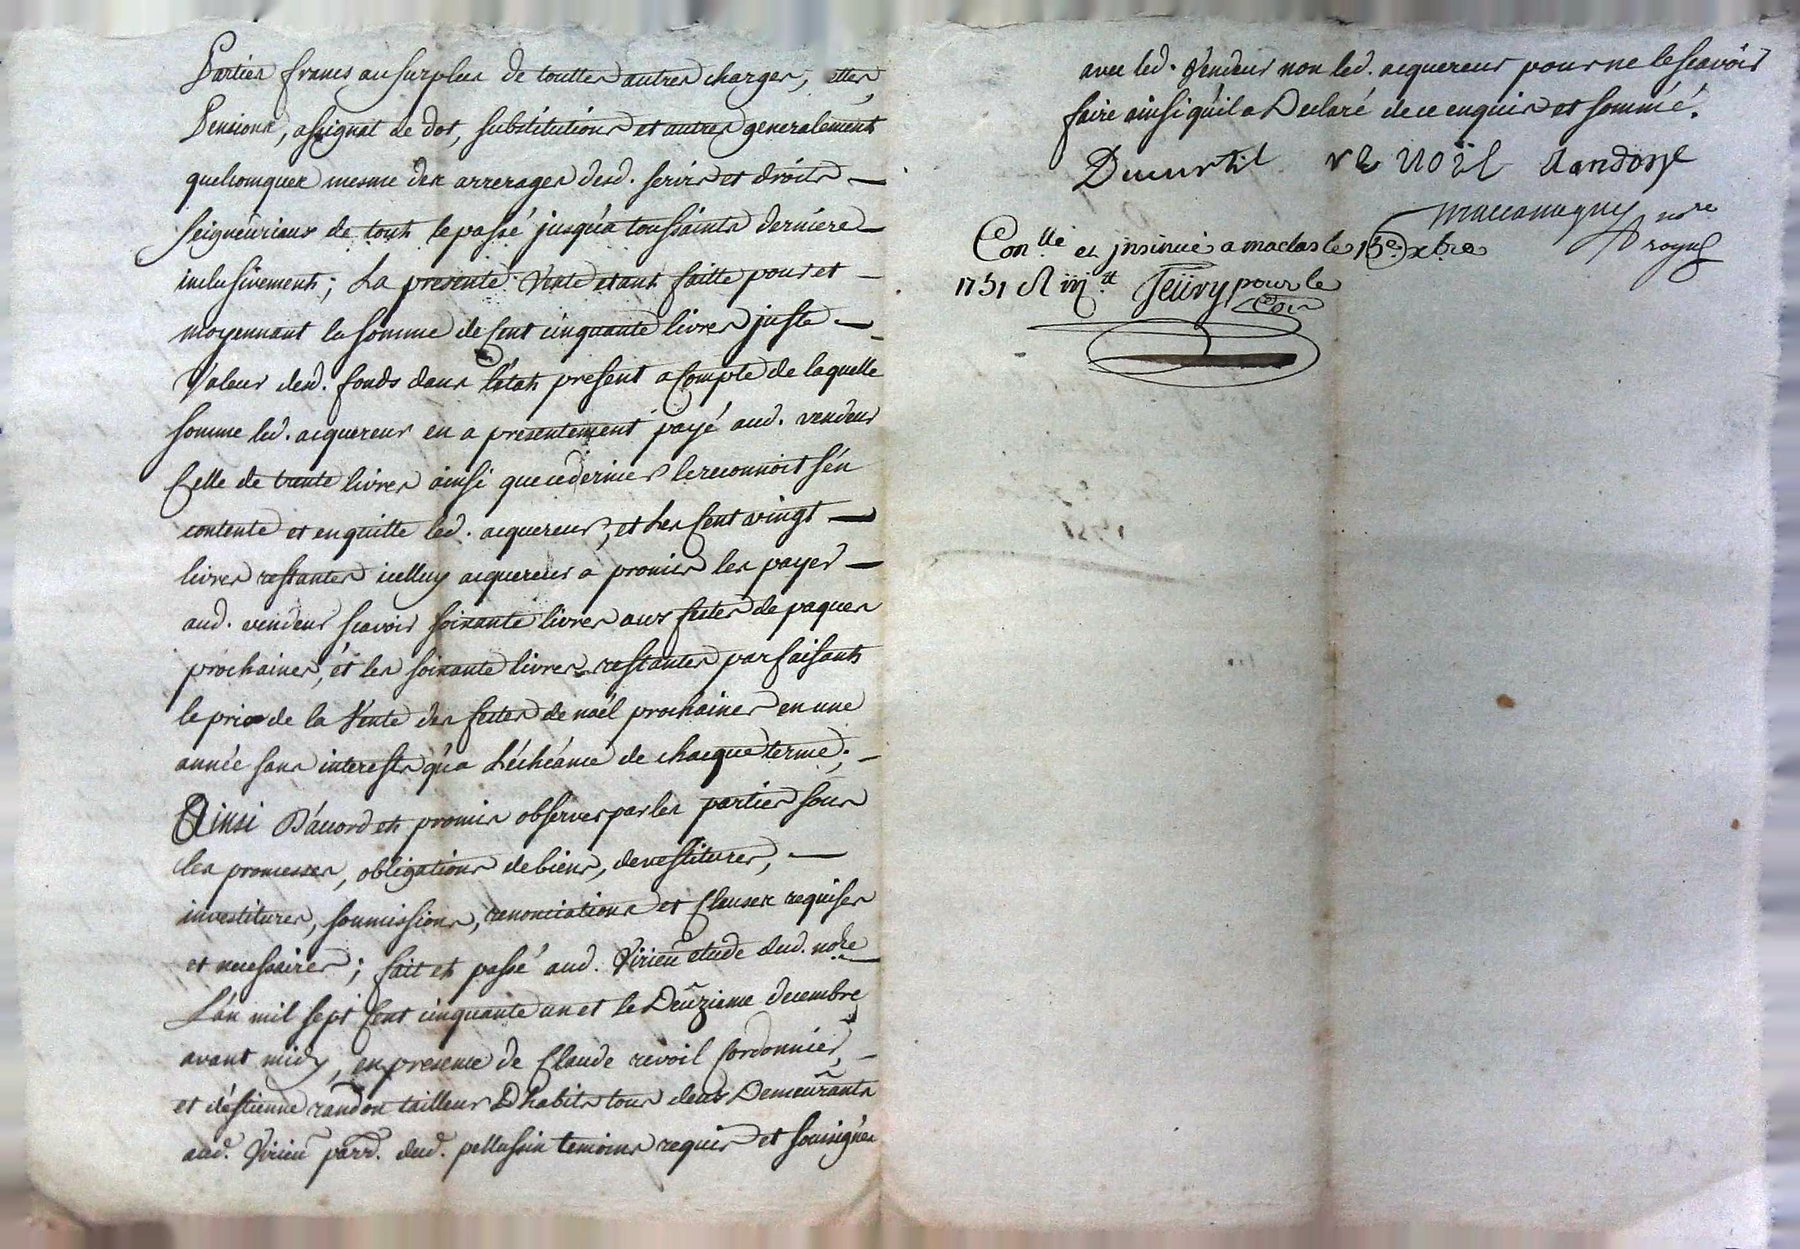 Parties francs au surplus de touttes autres charges,
Pensions, assignat de dot, substitutions et autres generalement
quelconques mesme des arrerages desd. servis et droits
seigneuriaux de tout le passé jusqu'a toussaints derniere
inclusivement; La presente vente etant faitte pour et
moyennant la somme de Cent cinquante livres juste
Valeur desd. fonds dans l'état present a Compte de laquelle
somme led. acquereur en a presentement payé aud. vendeur
Celle de trante livres ainsi que ce dernier le reconnoit s'en
contente et en quitte led. acquereur, et Les Cent vingt
livres restantes icelluy acquereur a promis les payer
aud. vendeur scavoir soixante livres aux festes de paques
prochaines, et les soixante livres restantes parfaisants
le prix de la Vente des festes de noël prochaines en une
année sans interests qu'a L'échéance de chacque terme;
Ainsi D'accord et promis observer par les parties sous
les promesses, obligations de biens, devestitures,
investitures, soumissions, renonciations et Clauses requises
et necessaires; fait et passé aud. Virieu etude dud. nore
L'an mil sept Cent cinquante un et le Deuzieme decembre
avant midy, en presence de Claude revoil Cordonnier,
et d'éstienne randon tailleur D'habits tous deux Demeurants
aud. Virieu parr. dud. pellussin temoins requis et soussignés
avec led. Vendeur non led. acquereur pour ne le scavoir
faire ainsi qu'il a Declaré de ce enquis et sommé.
Ducurtil
nore
royal
Conllé et insinué a maclas le 13e xbre
1751 pour le